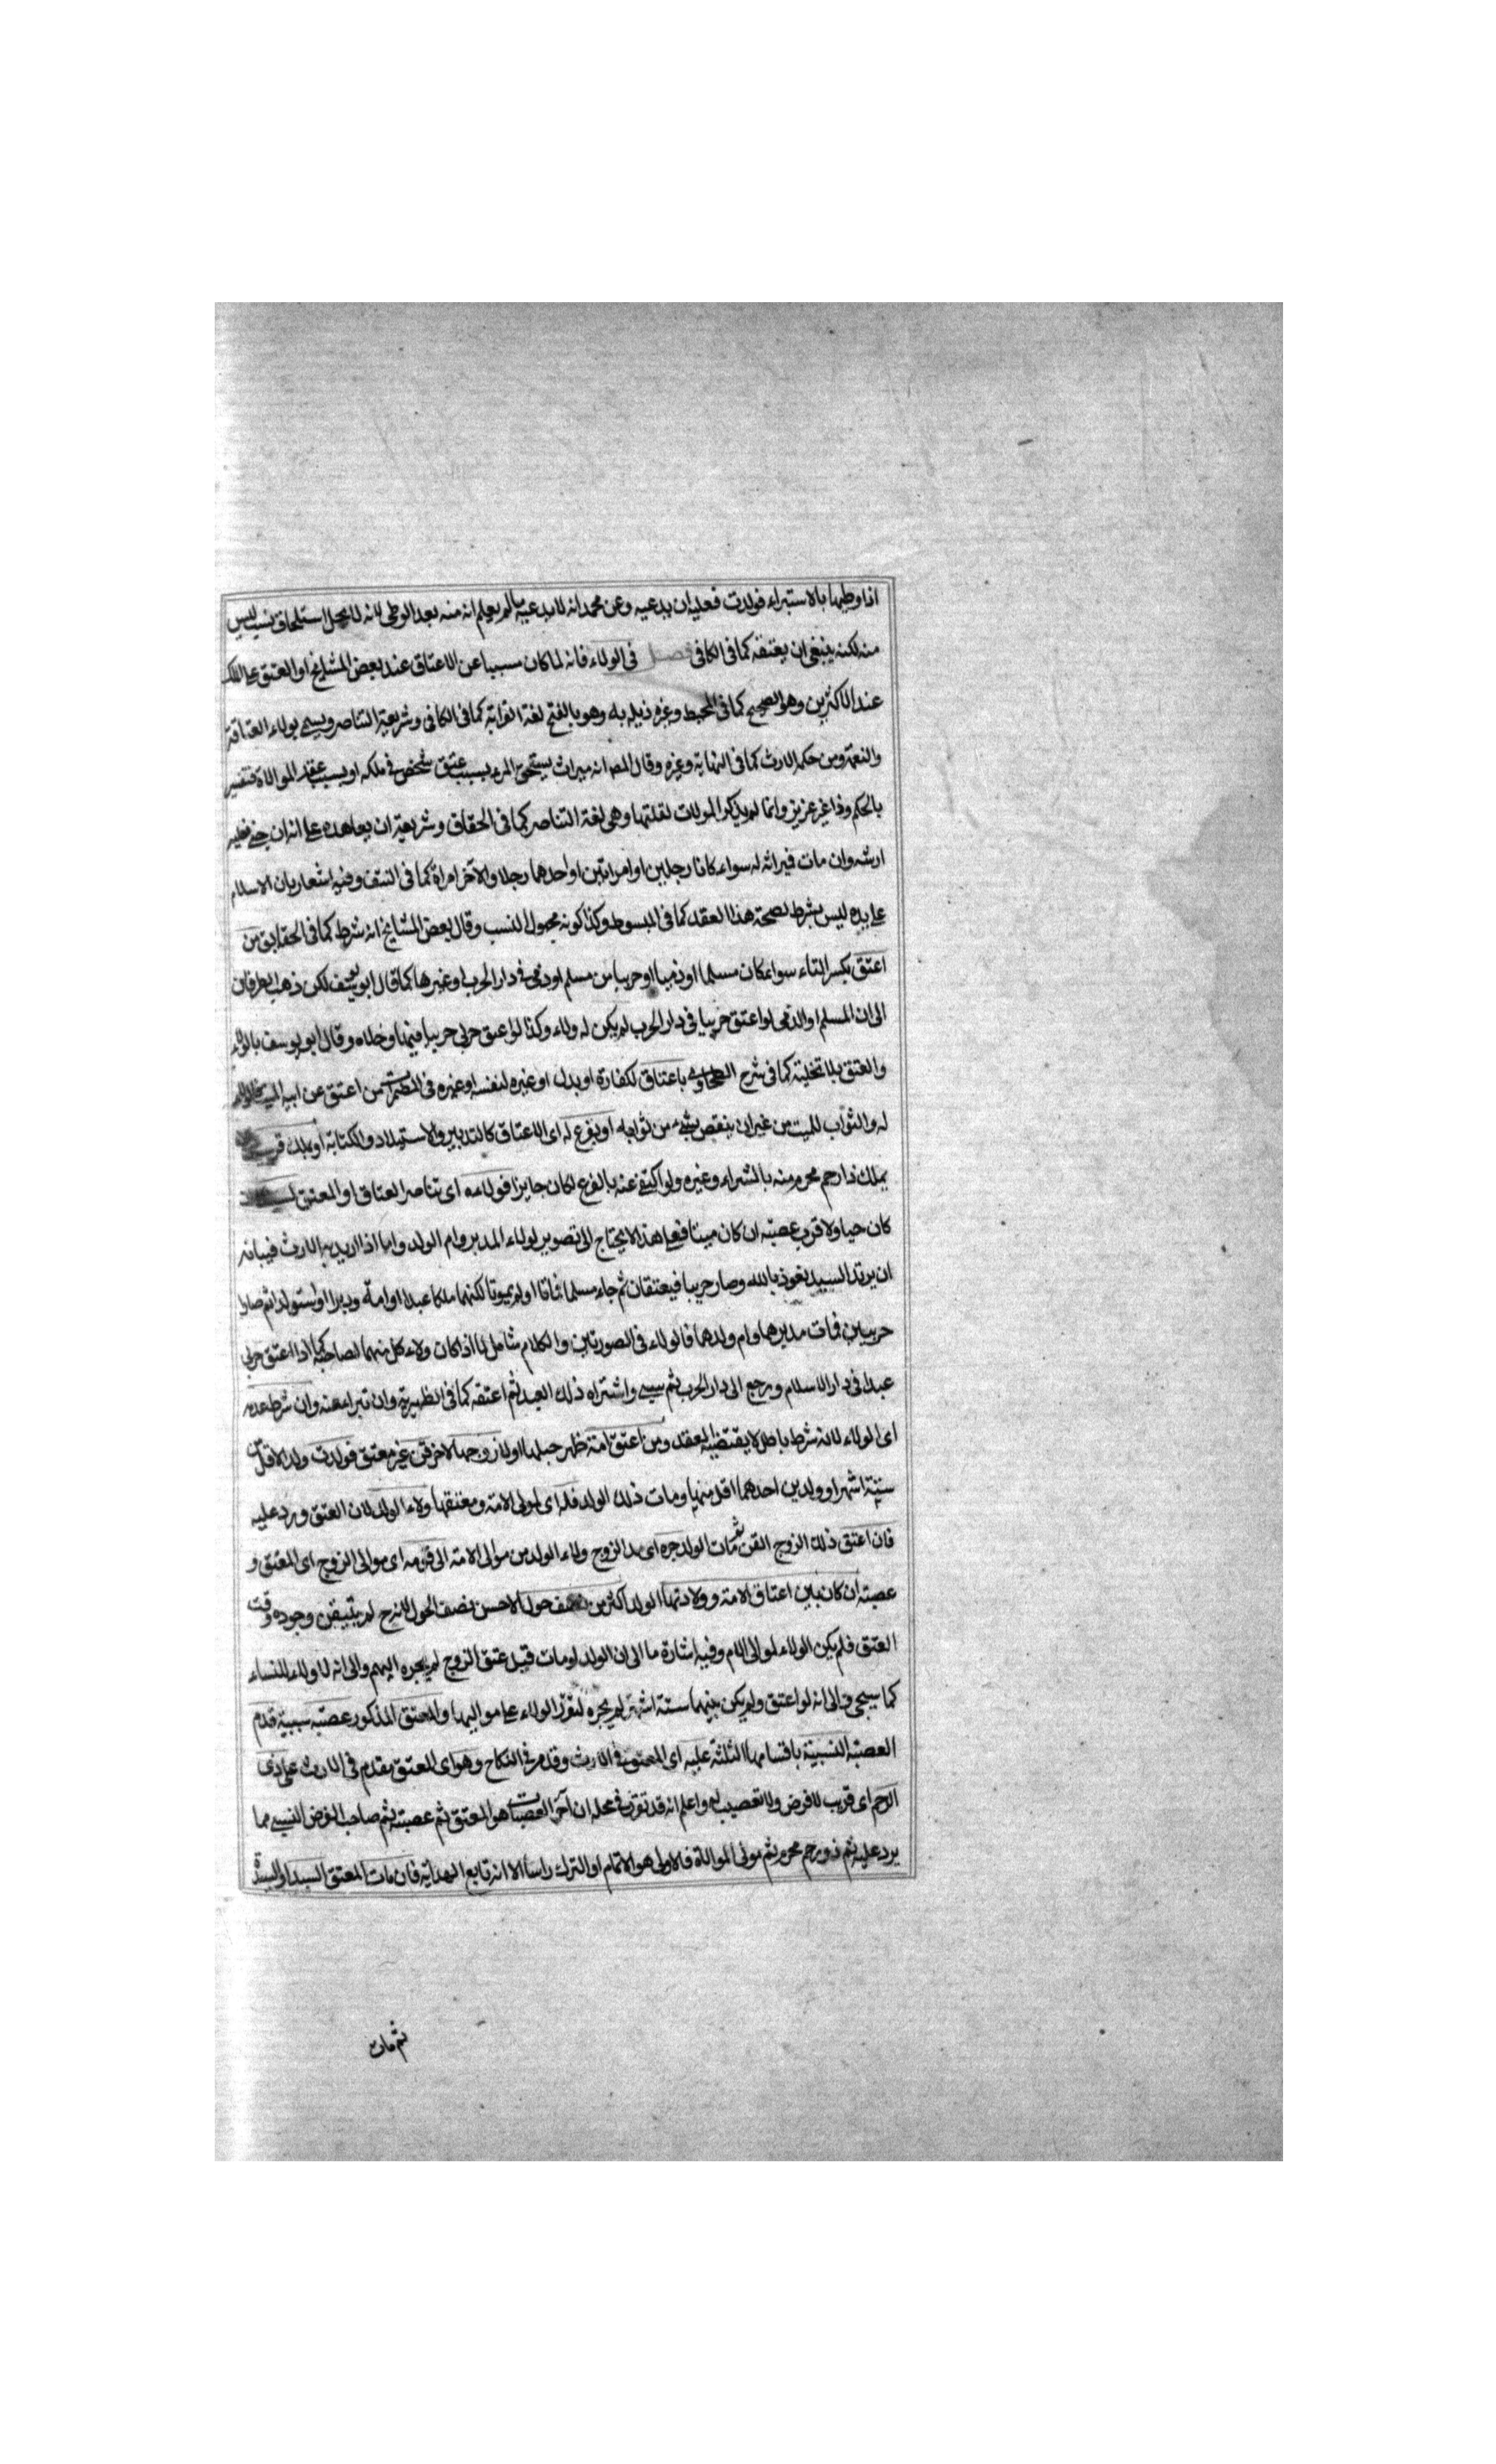 اذا وطيها بالاستبراء فولدت فعليه ان يدعيه وعن محمد انه لا يدعيه ما لم يعلم انه منه بعد الوطى لانه لا يحل استلحاق نسب ليس
منه لكنه ينبغى ان يعتقه كما فى الكافى فصل فى الولاء فانه لما كان مسببا عن الاعتاق عند بعض المشايخ او العتق على الملك
عند الاكثرين وهو الصحيح كما فى المحيط وغيره ذيله به وهو بالفتح لغة القرابة كما فى الكافى وشريعة التناصر ويسمى بولاء العتاقة
والنعمة ومن حكمه الارث كما فى النهاية وغيره وقال المص انه ميراث يستحق المرء بسبب عتق شخص فى ملكه او بسبب عقد الموالاة فتفسير
بالحكم وذا غير عزيز وانما لم يذكر الموالات لقلتها وهى لغة التناصر كما فى الحقاق وشريعة ان يعاهده على انه ان جنى فعليه
ارشه وان مات فيراثه له سواء كانا رجلين او امراتين او احدهما رجلا والآخر امراة كما فى النتف وفيه اشعار بان الاسلام
على يده ليس بشرط لصحة هذا العقد كما فى المبسوط وكذا كونه مجهول النسب وقال بعض المشايخ انه شرط كما فى الحقايق من
اعتق بكسر التاء سواء كان مسلما او ذميا او حربيا من مسلم او ذمى فى دار الحرب او غيرها كما قال ابو يوسف لكن ذهب الطرفان
الى ان المسلم او الذمى لو اعتق حربيا فى دار الحرب لم يكن له ولاء وكذا لو اعتق حربى حربيا فيها وخلاه وقال ابو يوسف بالولاء
والعتق بلا تخلية كما فى شرح الطحاوى باعتاق لكفارة او بدل او غيره لنفسه او غيره فى النظم من اعتق عن ابيه الميت فالولاء
له والثواب للميت من غير ان ينقص شىء من ثوابه او بفرع له اى الاعتاق كالتدبير والاستيلاد والكتابة او بملك قريب
يملك ذا رحم محرم منه بالشراء وغيره ولو اكتفى عنه بالفرع لكان جايزا فولاءه اى تناصر العتاق او المعتق لسيده
كان حيا ولاقرب عصبته ان كان ميتا فعلى هذا لا يحتاج الى تصوير لولاء المدبر وام الولد واما اذا اريد به الارث فبيانه
ان يرتد السيد نعوذ بالله وصار حربيا فيعتقان ثم جاء مسلما فماتا او لم يموتا لكنهما ملكا عبدا او امة ودبرا او استولد ثم صارا
حربيين فمات مدبرهما وام ولدهما فالولاء فى الصورتين والكلام شامل لما اذا كان ولاء كل منهما لصاحبه كما اذا اعتق حربى
عبدا فى دار الاسلام ورجع الى دار الحرب ثم سبى واشتراه ذلك العبد ثم اعتقه كما فى الظهيرية وان تبرا منه وان شرط عدمه
اى الولاء لانه شرط باطل لا يقتضيه العقد ومن اعتق امة ظهر حبلها اولا زوجها الاخر قن غير معتق فولدت ولدا لاقل من
ستة اشهر او ولدين احدهما اقل منها ومات ذلك الولد فله اى لمولى الامة ومعتقها ولاء الولد لان العتق ورد عليه
فان اعتق ذلك الزوج القن ثم مات الولد جره اى مد الزوج ولاء الولد من موالى الامة الى قومه اى موالى الزوج اى المعتق و
عصبته ان كان بين اعتاق الامة وولادتها الولد اكثر من نصف حول الاحسن نصف الحول لانه ح لم يتيقن وجوده وقت
العتق فلم يكن الولاء لموالى الام وفيه اشارة ما الى ان الولد لو مات قبل عتق الزوج لم يجره اليهم والى انه لا ولاء للنساء
كما سيجى والى انه لو اعتق ولم يكن بينهما ستة اشهر لم يجره لتقرر الولاء على مواليها والمعتق المذكور عصبته سببية قدم
العصبة النسبية باقسامها الثلثة عليه اى المعتق فى الارث وقدم فى النكاح وهو اى المعتق يقدم فى الارث على ذى
الرحم اى قريب لا فرض ولا تعصيب له واعلم انه قد تقرر فى محله ان آخر العصبات هو المعتق ثم عصبته ثم صاحب الفرض النسبى مما
يرد عليه ثم ذو رحم محرم ثم مولى الموالاة فالاولى هو الاتمام او الترك راسا الا انه تابع الهداية فان مات المعتق السيد او السيدة
ثم مات